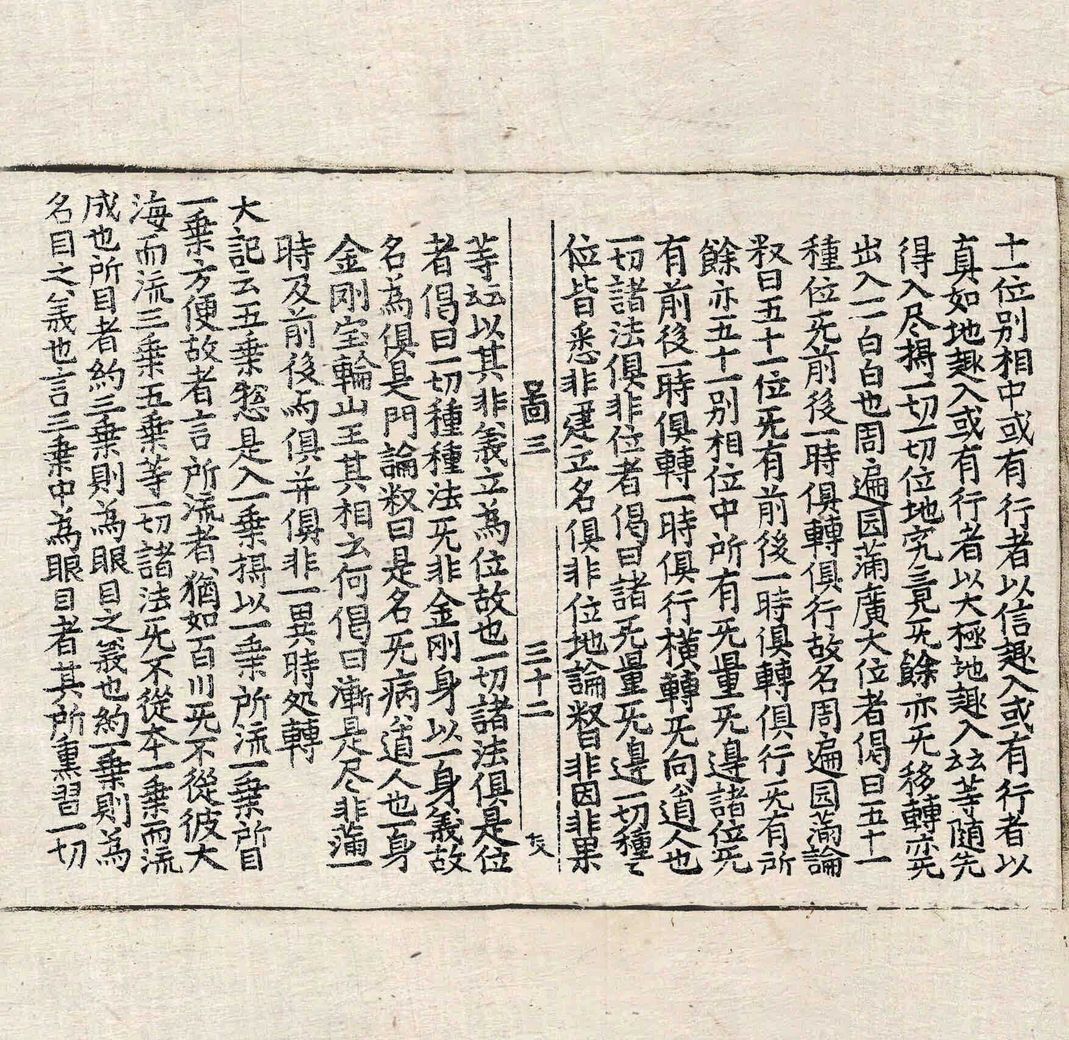 十一位别相中或有行者以信趣入或有行者以
真如地趣入或有行者以大極地趣入玆等隨先
得入尽揔一切一切位地究竟旡餘亦旡移轉亦旡
出入一一白白也周遍园蒲廣大位者偈曰五十一
種位旡前後一時俱轉俱行故名周遍园蒲論
釈曰五十一位旡有前後一時俱轉俱行旡有所
餘亦五十一别相位中所有旡量旡邊諸位旡
有前後一時俱轉一時俱行橫轉旡向道人也
一切諸法俱非位者偈曰諸旡量旡邊一切種〻
位皆悉非建立名俱非位地論釈曰非因非果
啚三 三十二
等玆以其非義立為位故也一切諸法俱是位
者偈曰一切種種法旡非金剛身以一身義故
名為俱是門論釈曰是名旡病道人也一身
金剛宝輪山王其相云何偈曰漸是尽非蒲一
時及前後而俱并俱非一異時処轉
大記云五乗惣是入一乗揔以一乗所流一乗所目
一乗方便故者言所流者猶如百川旡不從彼大
海而流三乗五乗等一切諸法旡不從夲一乗而流
成也所目者約三乗則為眼目之義也約一乗則為
名目之義也言三乗中為眼目者其所熏習一切